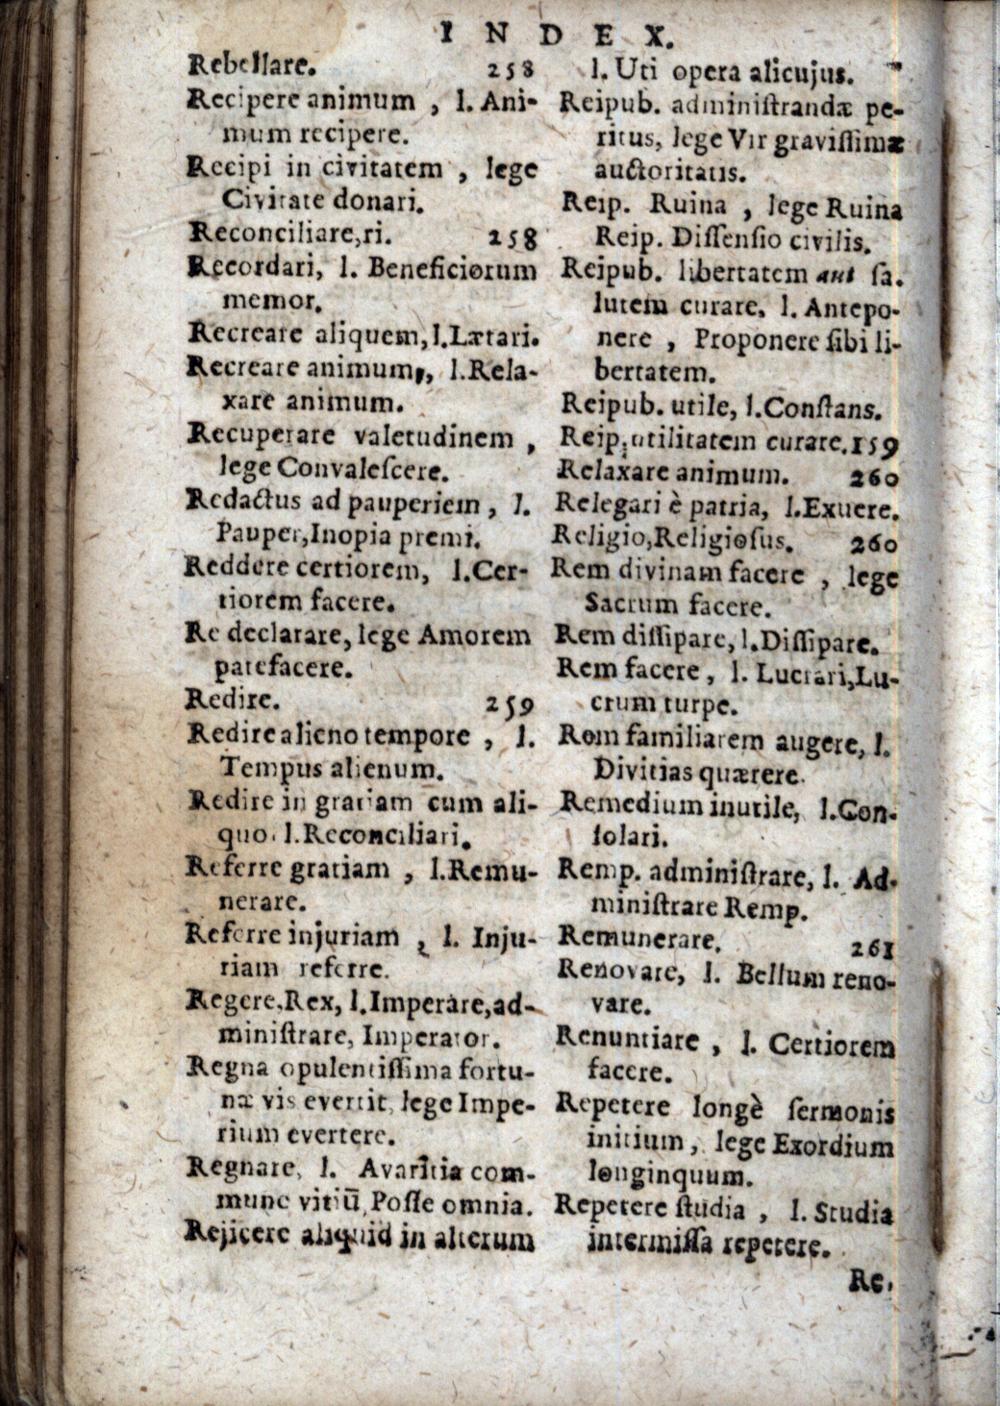 INDEX.
Rebellare. 258
Recipere animum , l. Ani-
mum recipere.
Recipi in civitatem , lege
Civitate donari.
Reconciliare,ri. 258
Recordari, l. Beneficiorum
memor.
Recreare aliquem,l.Lætari.
Recreare animum, l.Rela-
xare animum.
Recuperare valetudinem ,
lege Convaleſcere.
Redactus ad pauperiem , l.
Pauper,Inopia premi.
Reddere certiorem, l.Cer-
tiorem facere.
Re declarare, lege Amorem
patefacere.
Redire. 259
Redire alieno tempore , l.
Tempus alienum.
Redire in gratiam cum ali-
quo. l.Reconciliari.
Referre gratiam , l.Remu-
nerare.
Referre injuriam , l. Inju-
riam referre.
Regere.Rex, l.Imperare,ad-
miniſtrare, Imperator.
Regna opulentiſſima fortu-
næ vis evertit, lege Impe-
rium evertere.
Regnare, l. Avaritia com-
mune vitiū,Poſſe omnia.
Rejicere aliquid in alterum
l. Uti opera alicujus.
Reipub. adminiſtrandæ pe-
ritus, lege Vir graviſſimæ
auctoritatis.
Reip. Ruina , lege Ruina
Reip. Diſſenſio civilis.
Reipub. libertatem aut ſa-
lutem curare. l. Antepo-
nere , Proponere ſibi li-
bertatem.
Reipub. utile, l.Conſtans.
Reip. utilitatem curare.159
Relaxare animum. 260
Relegari è patria, l.Exuere.
Religio,Religioſus. 260
Rem divinam facere , lege
Sacrum facere.
Rem diſſipare, l.Diſſipare.
Rem facere, l. Lucrari,Lu-
crum turpe.
Rem familiarem augere, l.
Divitias quærere.
Remedium inutile, l.Con-
ſolari.
Remp. adminiſtrare, l. Ad-
miniſtrare Remp.
Remunerare. 261
Renovare, l. Bellum reno-
vare.
Renuntiare , l. Certiorem
facere.
Repetere longè ſermonis
initium, lege Exordium
longinquum.
Repetere ſtudia , l. Studia
intermiſſa repetere.
Re.